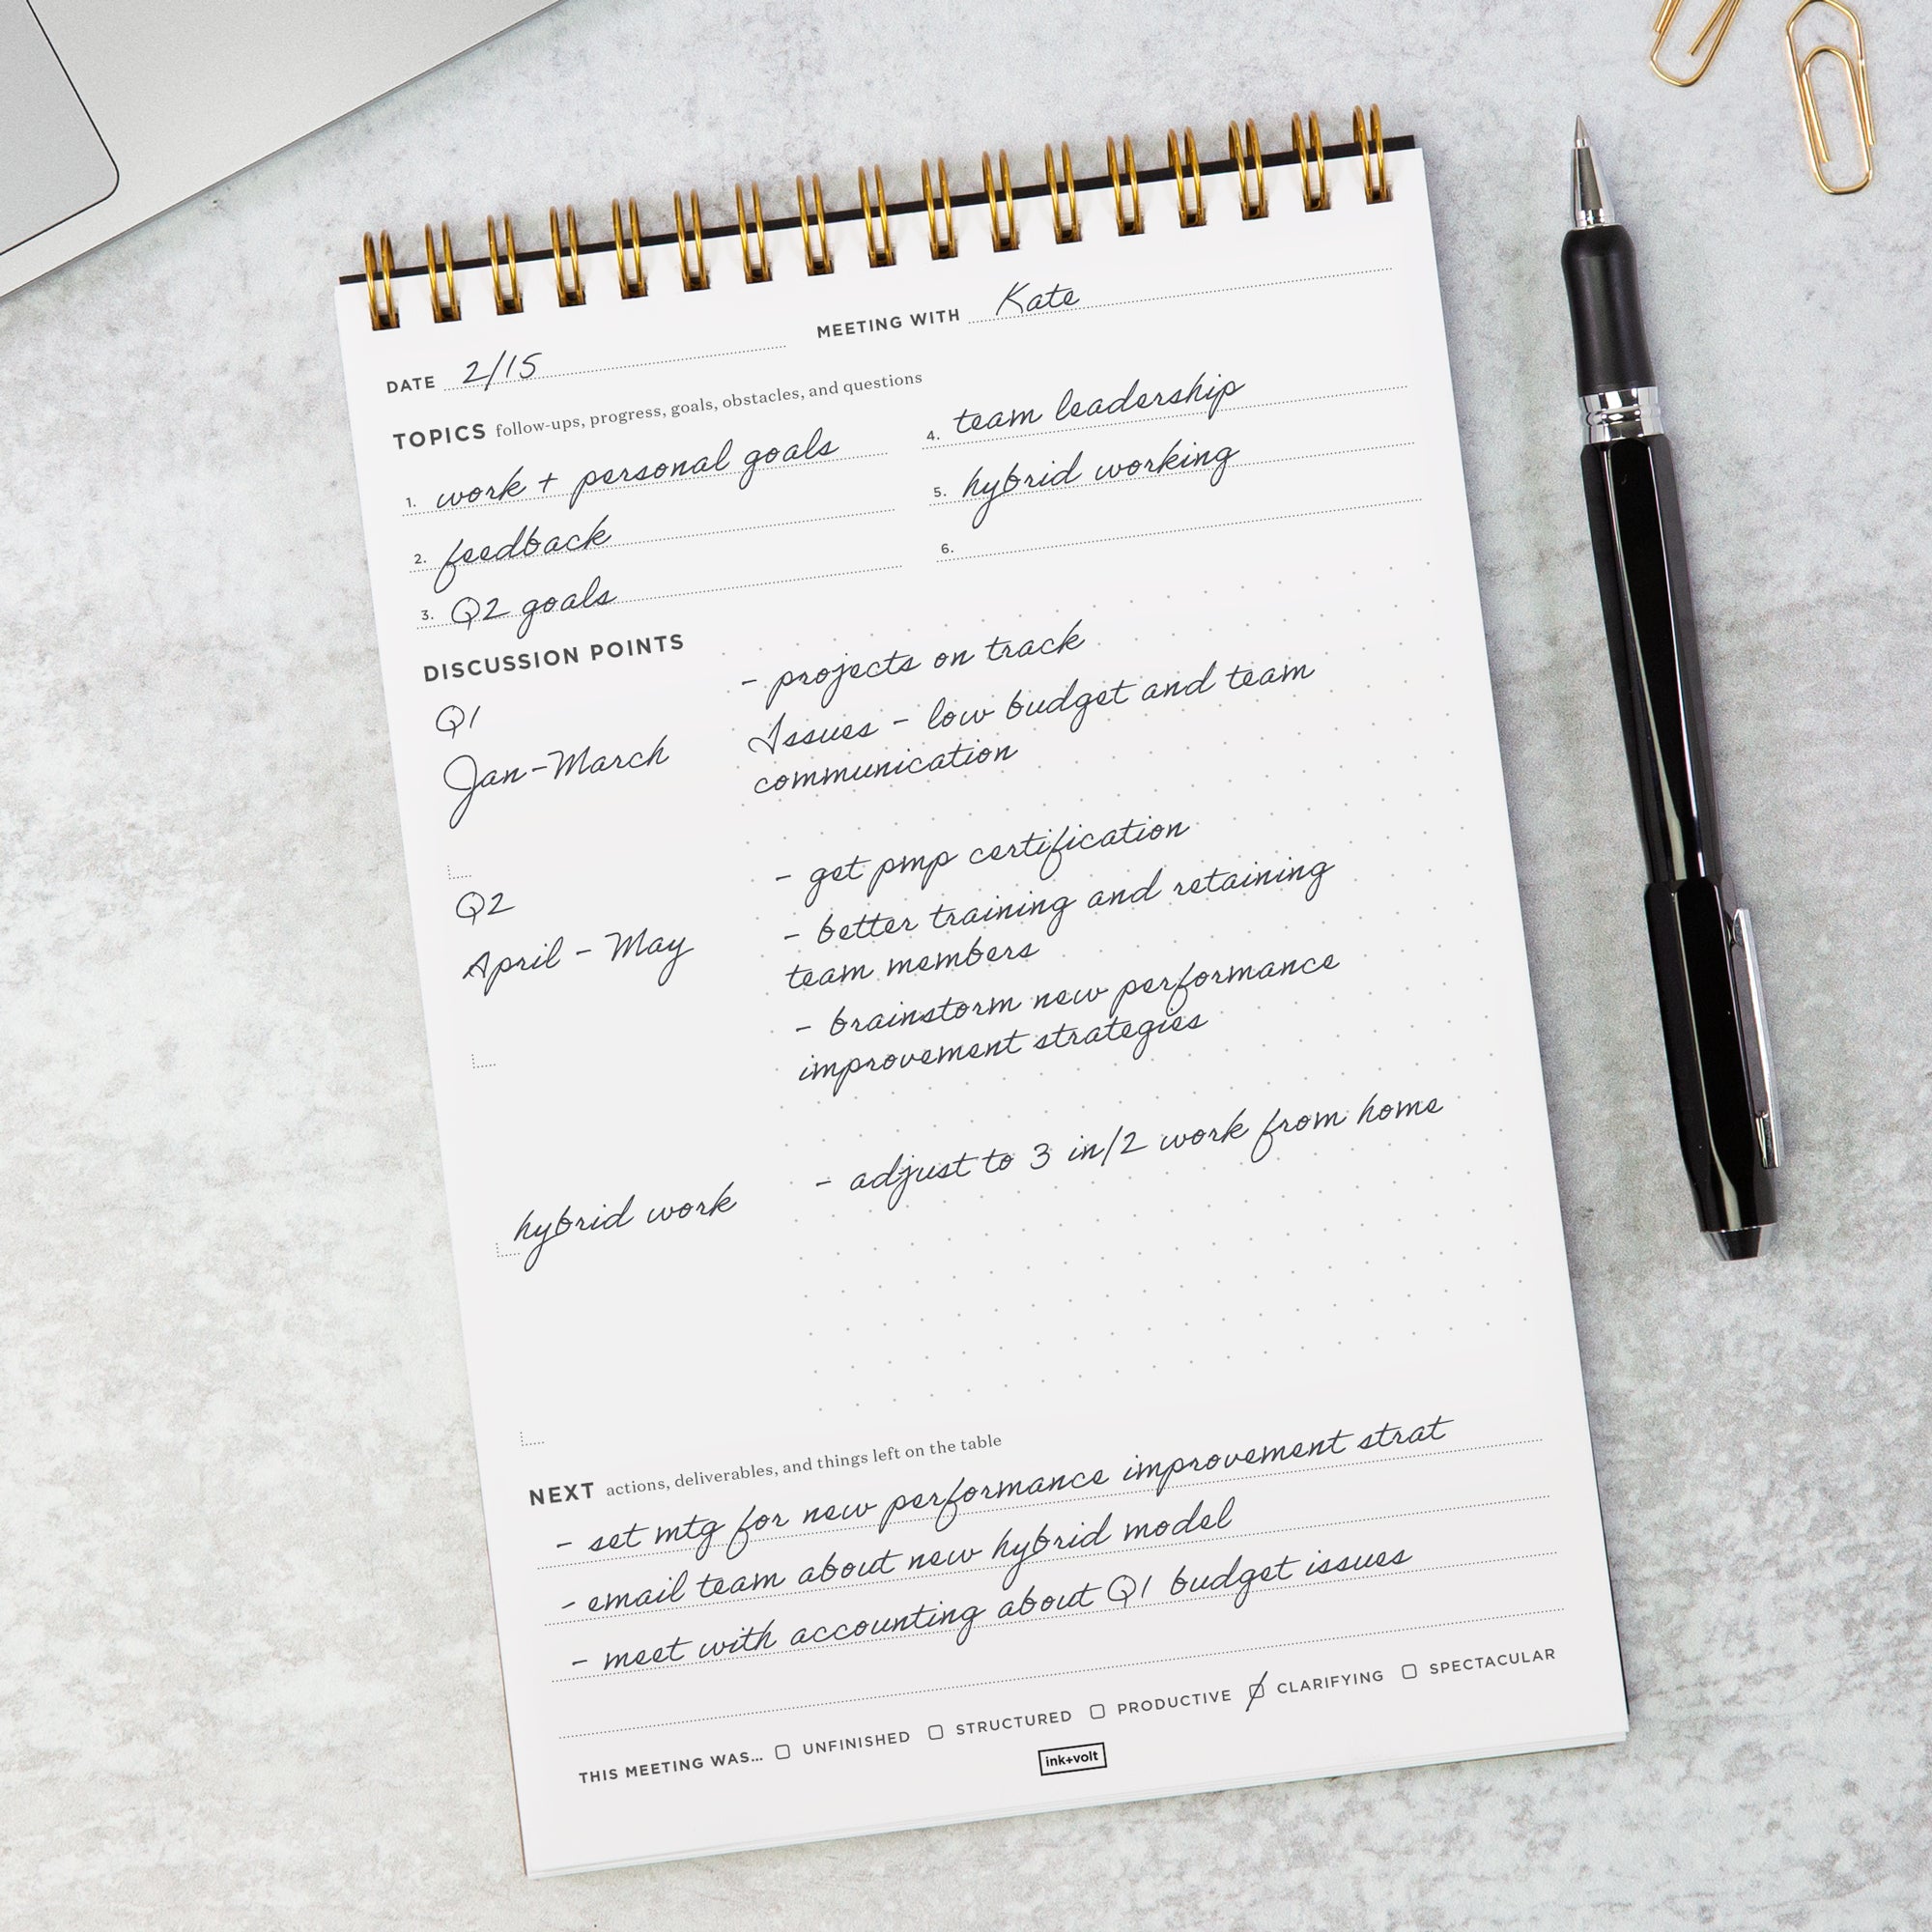 DATE 2/15 MEETING WITH Kate
TOPICS follow-ups, progress, goals, obstacles, and questions
1. work + personal goals
2. feedback
3. Q2 goals
4. team leadership
5. hybrid working
6.
DISCUSSION POINTS
Q1
Jan-March
- projects on track
Issues - low budget and team
communication
Q2
April - May
- get pmp certification
- better training and retaining
team members
- brainstorm new performance
improvement strategies
hybrid work
- adjust to 3 in/2 work from home
NEXT actions, deliverables, and things left on the table
- set mtg for new performance improvement strat
- email team about new hybrid model
- meet with accounting about Q1 budget issues
THIS MEETING WAS... UNFINISHED STRUCTURED PRODUCTIVE CLARIFYING SPECTACULAR
ink+volt